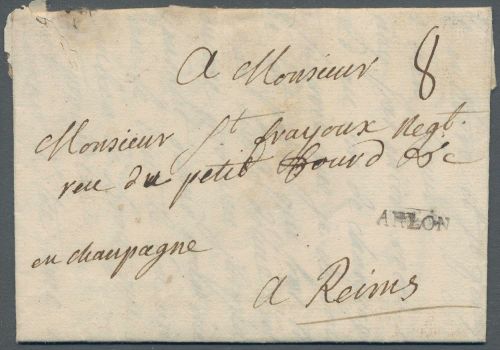 A Monsieur 8
Monsieur St frayoux Negt.
rue du petit Bourd &c
ARLON
en chaupagne
A Reims